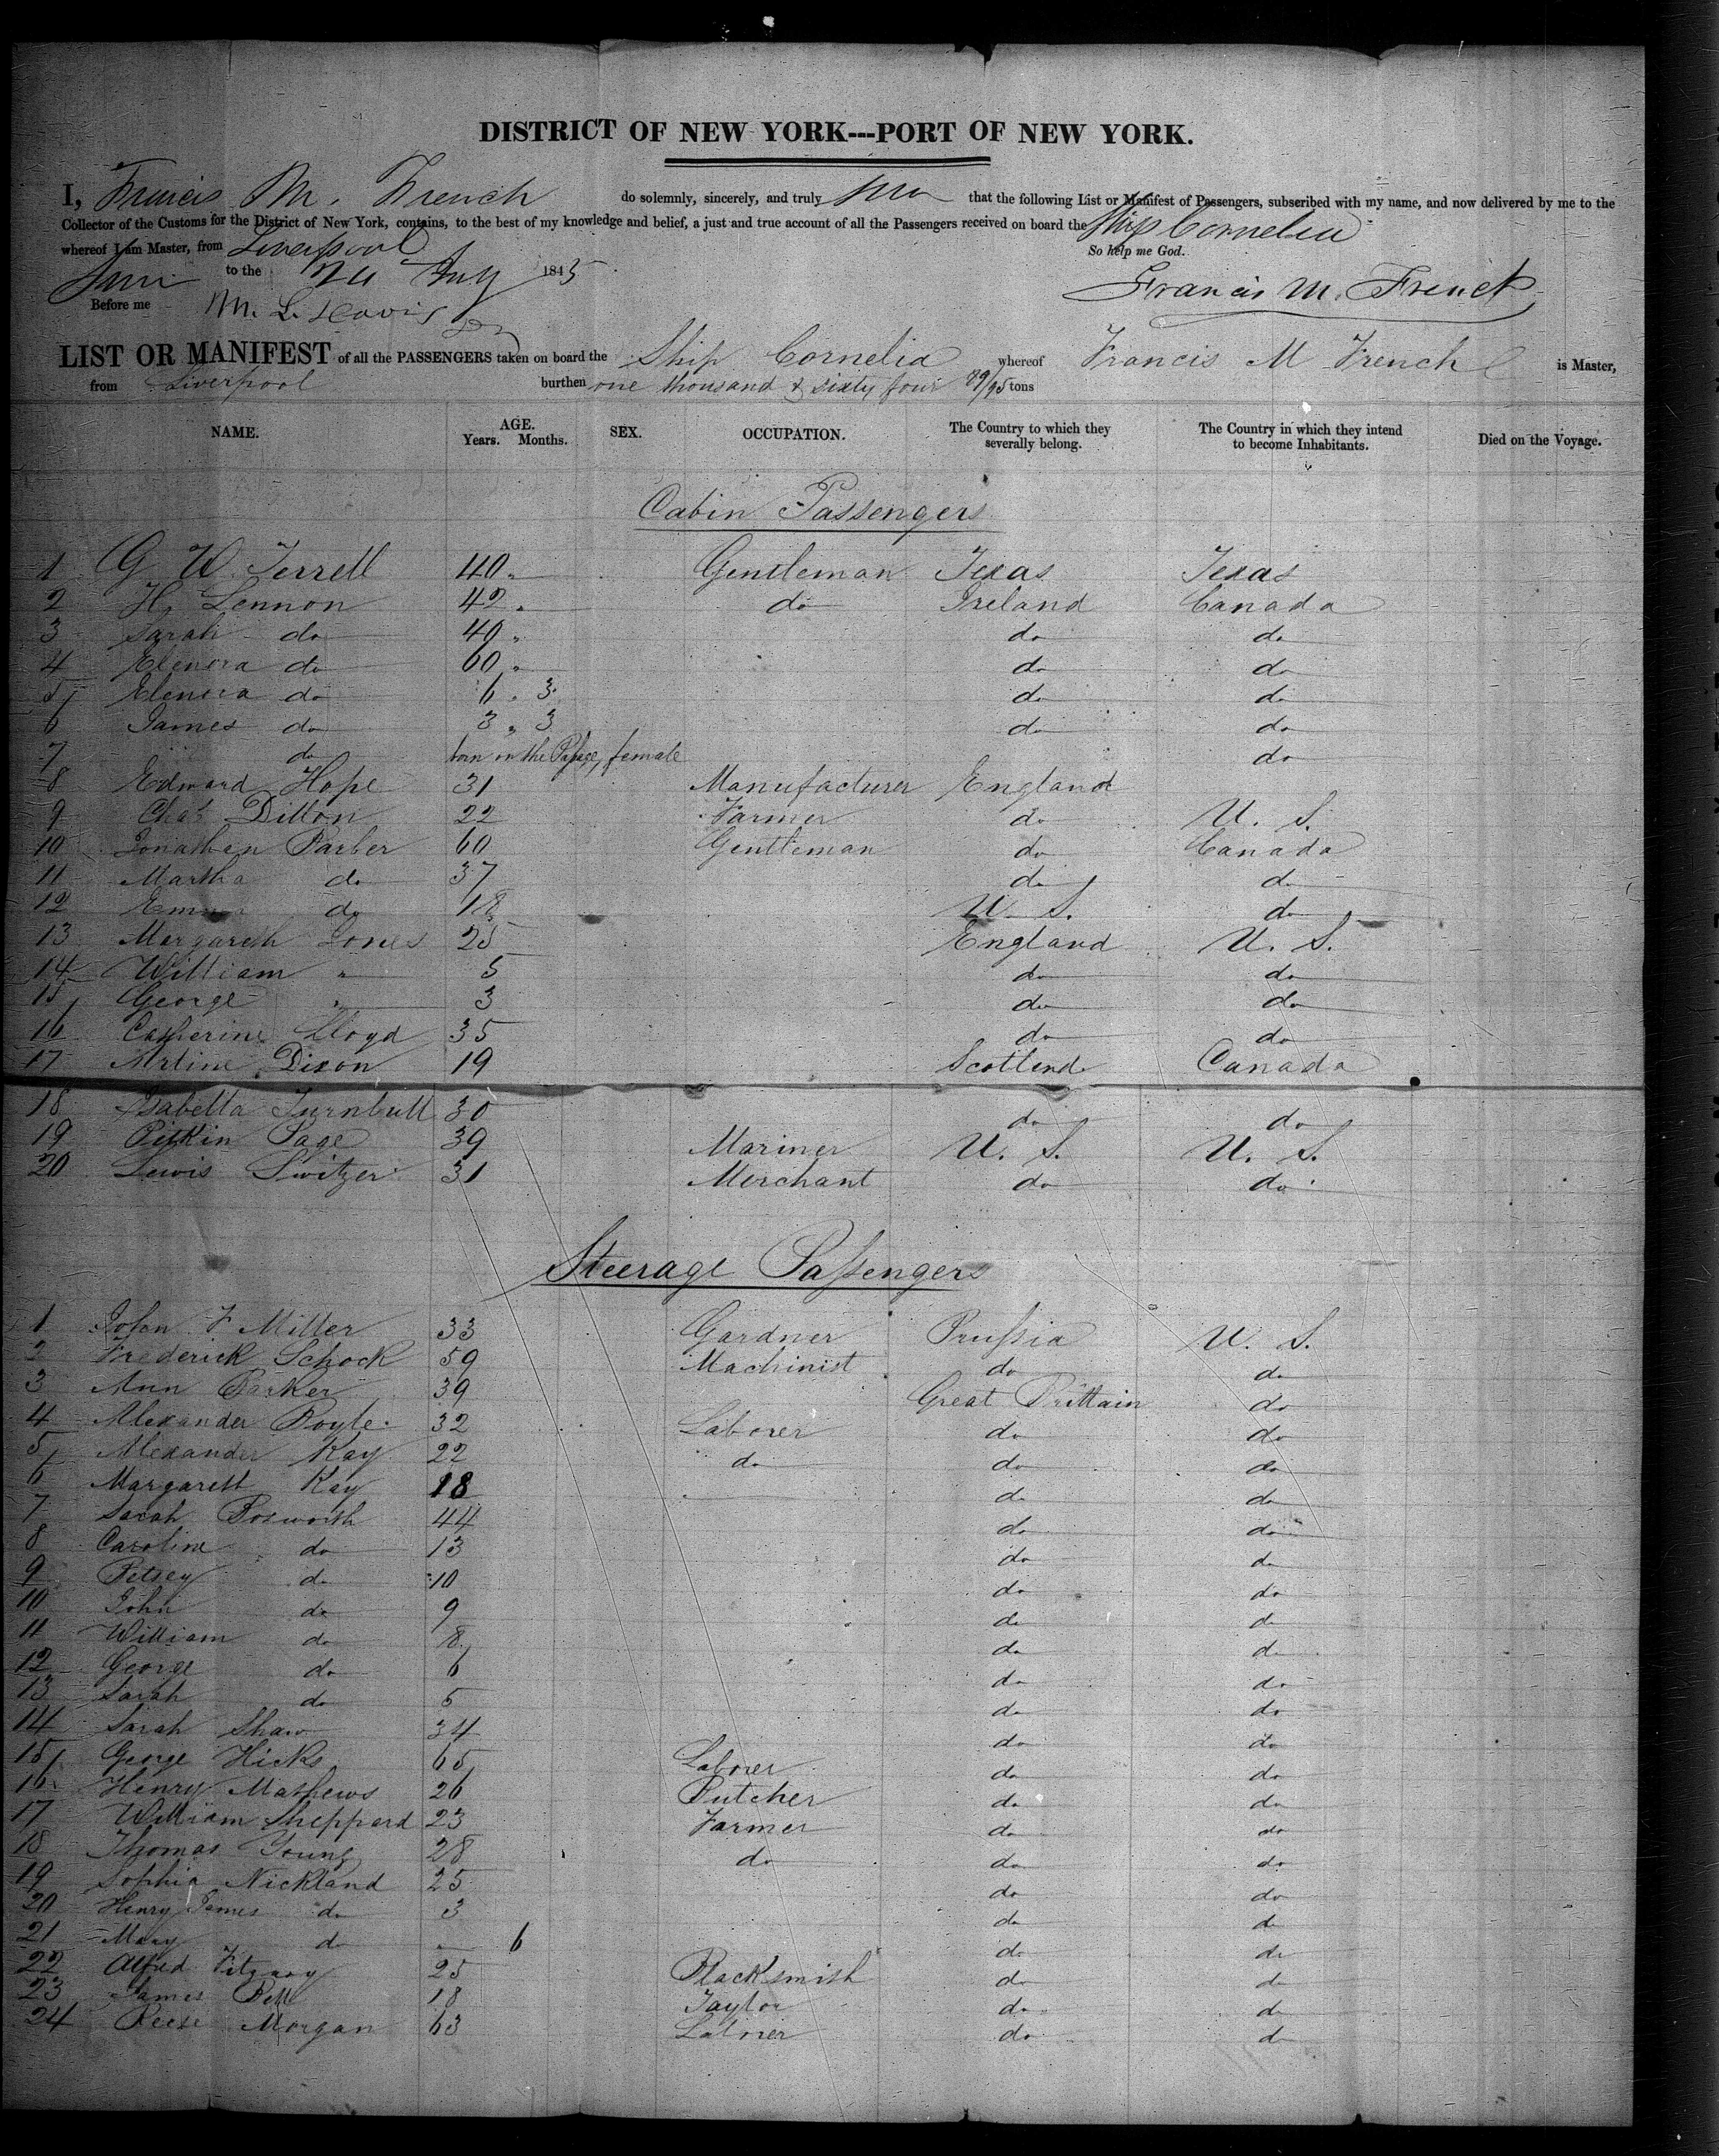 DISTRICT OF NEW YORK---PORT OF NEW YORK.
I, Francis M. French do solemnly, sincerely, and truly that the following List or Manifest of Passengers, subscribed with my name, and now delivered by me to the
Collector of the Customs for the District of New York, contains, to the best of my knowledge and belief, a just and true account of all the Passengers received on board the Ship Cornelia
whereof I am Master, from Liverpool So help me God.
to the 1845 Francis M. French
Before me M. L. Davis
LIST OR MANIFEST of all the PASSENGERS taken on board the Ship Cornelia whereof Francis M French is Master,
from Liverpool burthen one thousand & sixty four 89/95 tons
NAME. AGE. Years. Months. SEX. OCCUPATION. The Country to which they severally belong. The Country in which they intend to become Inhabitants. Died on the Voyage.
Cabin Passengers
1 G W Terrell 40 " Gentleman Texas Texas
2 H, Lennon 42 " do Ireland Canada
3 Sarah do 40 " do do
4 Elenora do 60 " do do
5 Elenora do 6 " 3 do do
6 James do 3 " 3 do do
7 do born in the Passage, female do
8 Edward Hope 31 Manufacturer England
9 Chas Dillon 22 Farmer do U. S.
10 Jonathan Barber 60 Gentleman do Canada
11 Martha do 37 do do
12 Emma do 18 U. S. do
13 Margareth Jones 25 England U. S.
14 William " 5 do do
15 George " 3 do do
16 Catherine Lloyd 35 do do
17 Dixon 19 Scotland Canada
18 Isabella Turnbull 30 do do
19 Pitkin Page 39 Mariner U. S. U. S.
20 Lewis Switzer 31 Merchant do do
Steerage Passengers
1 John F Miller 33 Gardner Prussia U. S.
2 Frederick Schock 59 Machinist do do
3 Ann Parker 39 Great Brittain do
4 Alexander Boyle 32 Laborer do do
5 Alexander Kay 22 do do do
6 Margarett Kay 18 do do
7 Sarah Bosworth 44 do do
8 Caroline do 13 do do
9 Betsey do 10 do do
10 John do 9 do do
11 William do 8 do do
12 George do 6 do do
13 Sarah do 5 do do
14 Sarah Shaw 34 do do
15 George Hicks 65 Laborer do do
16 Henry Mathews 26 Butcher do do
17 William Sheppard 23 Farmer do do
18 Thomas Young 28 do do do
19 Sophia Nickland 25 do do
20 Henry James do 3 do do
21 Mary do 6 do do
22 Alfred 25 Blacksmith do do
23 James Bell 18 Taylor do do
24 Reese Morgan 63 Laborer do do